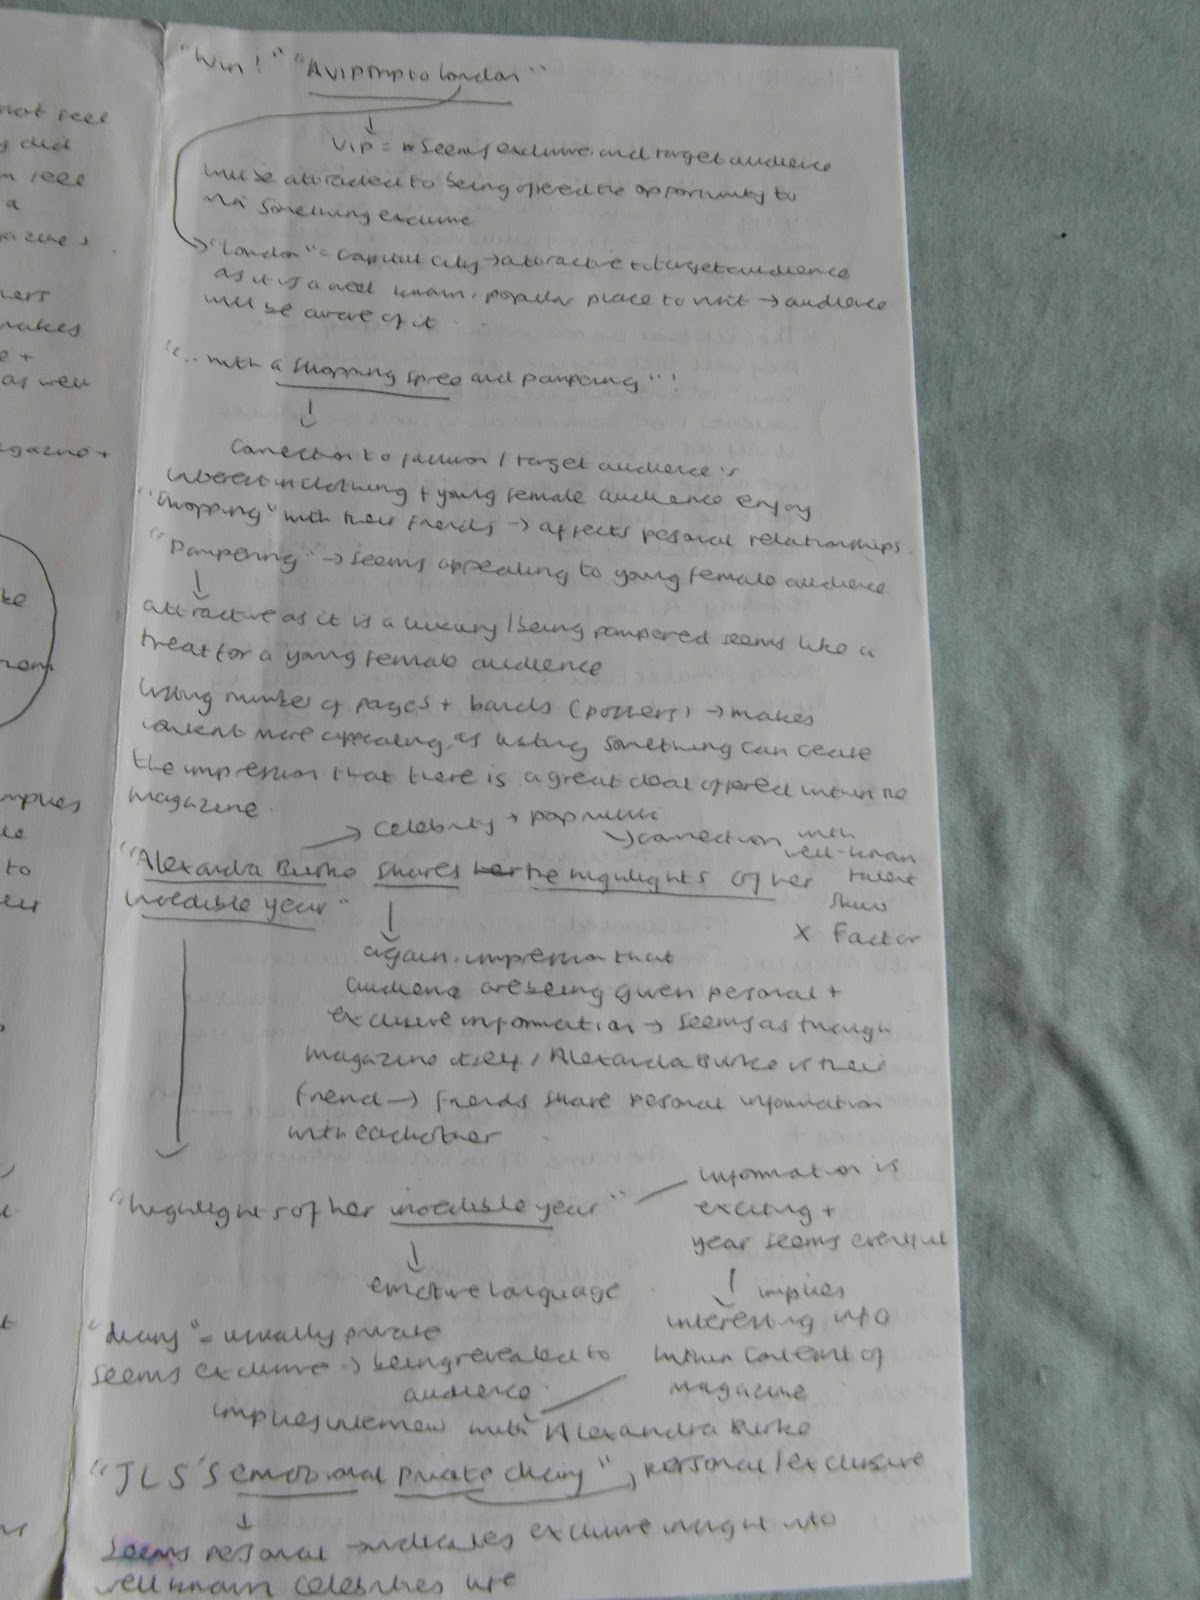 not feel
did
feel
a
"Win!" "A VIP trip to London"
VIP = seems exclusive and target audience
will be attracted to being offered the opportunity to
win something exclusive
"London" = capital city → attractive to target audience
as it is a well known, popular place to visit → audience
will be aware of it
makes
as well
"... with a shopping spree and pampering"!
Connection to fashion / target audience's
interest in clothing + young female audience enjoy
"shopping" with their friends → affects personal relationships.
"Pampering" → seems appealing to young female audience
attractive as it is a luxury / being pampered seems like a
treat for a young female audience
listing number of pages + bands (posters) → makes
content more appealing, as listing something can create
the impression that there is a great deal offered within the
magazine.
implies
to
→ celebrity → pop music
→ connection with
well-known
talent
show
X Factor
"Alexandra Burke shares the highlights of her
incredible year"
again impression that
audience are being given personal +
exclusive information → seems as though
magazine itself / Alexandra Burke is their
friend → friends share personal information
with each other
"highlights of her incredible year"
information is
exciting +
year seems eventful
implies
interesting info
within content of
magazine
emotive language
"diary" = usually private
seems exclusive → being revealed to
audience.
implies interview with Alexandra Burke
"JLS's emotional private diary", personal / exclusive
seems personal → indicates exclusive insight into
well known celebrities life